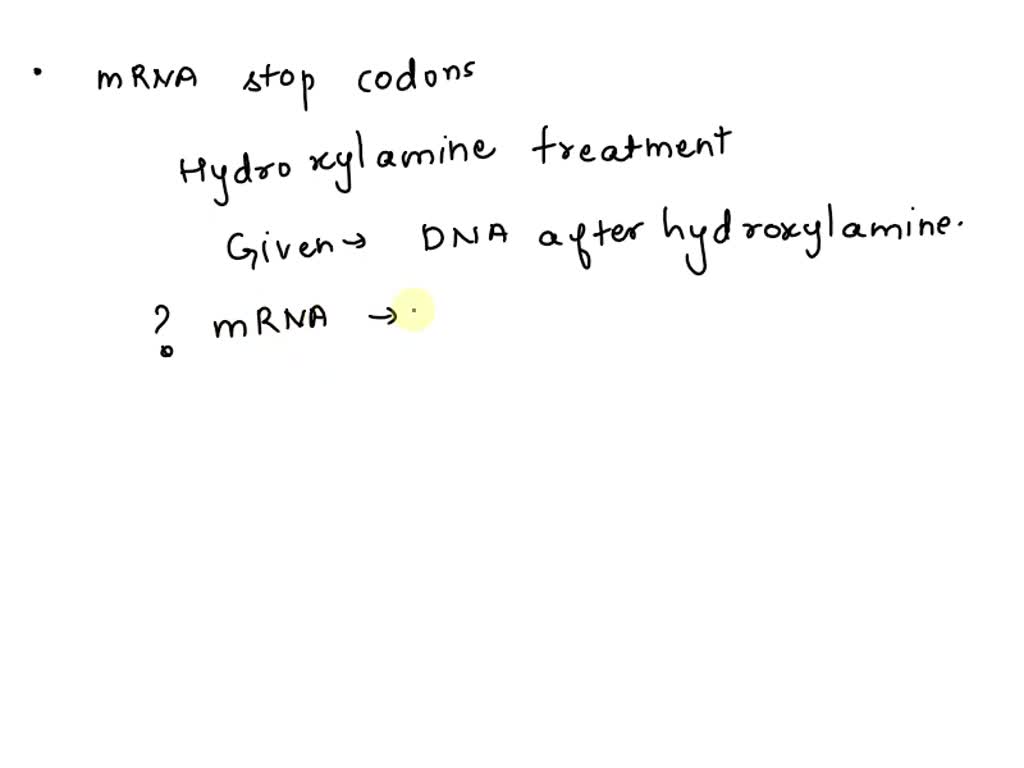 • mRNA stop codons
Hydroxylamine treatment
Given → DNA after hydroxylamine.
? mRNA → .